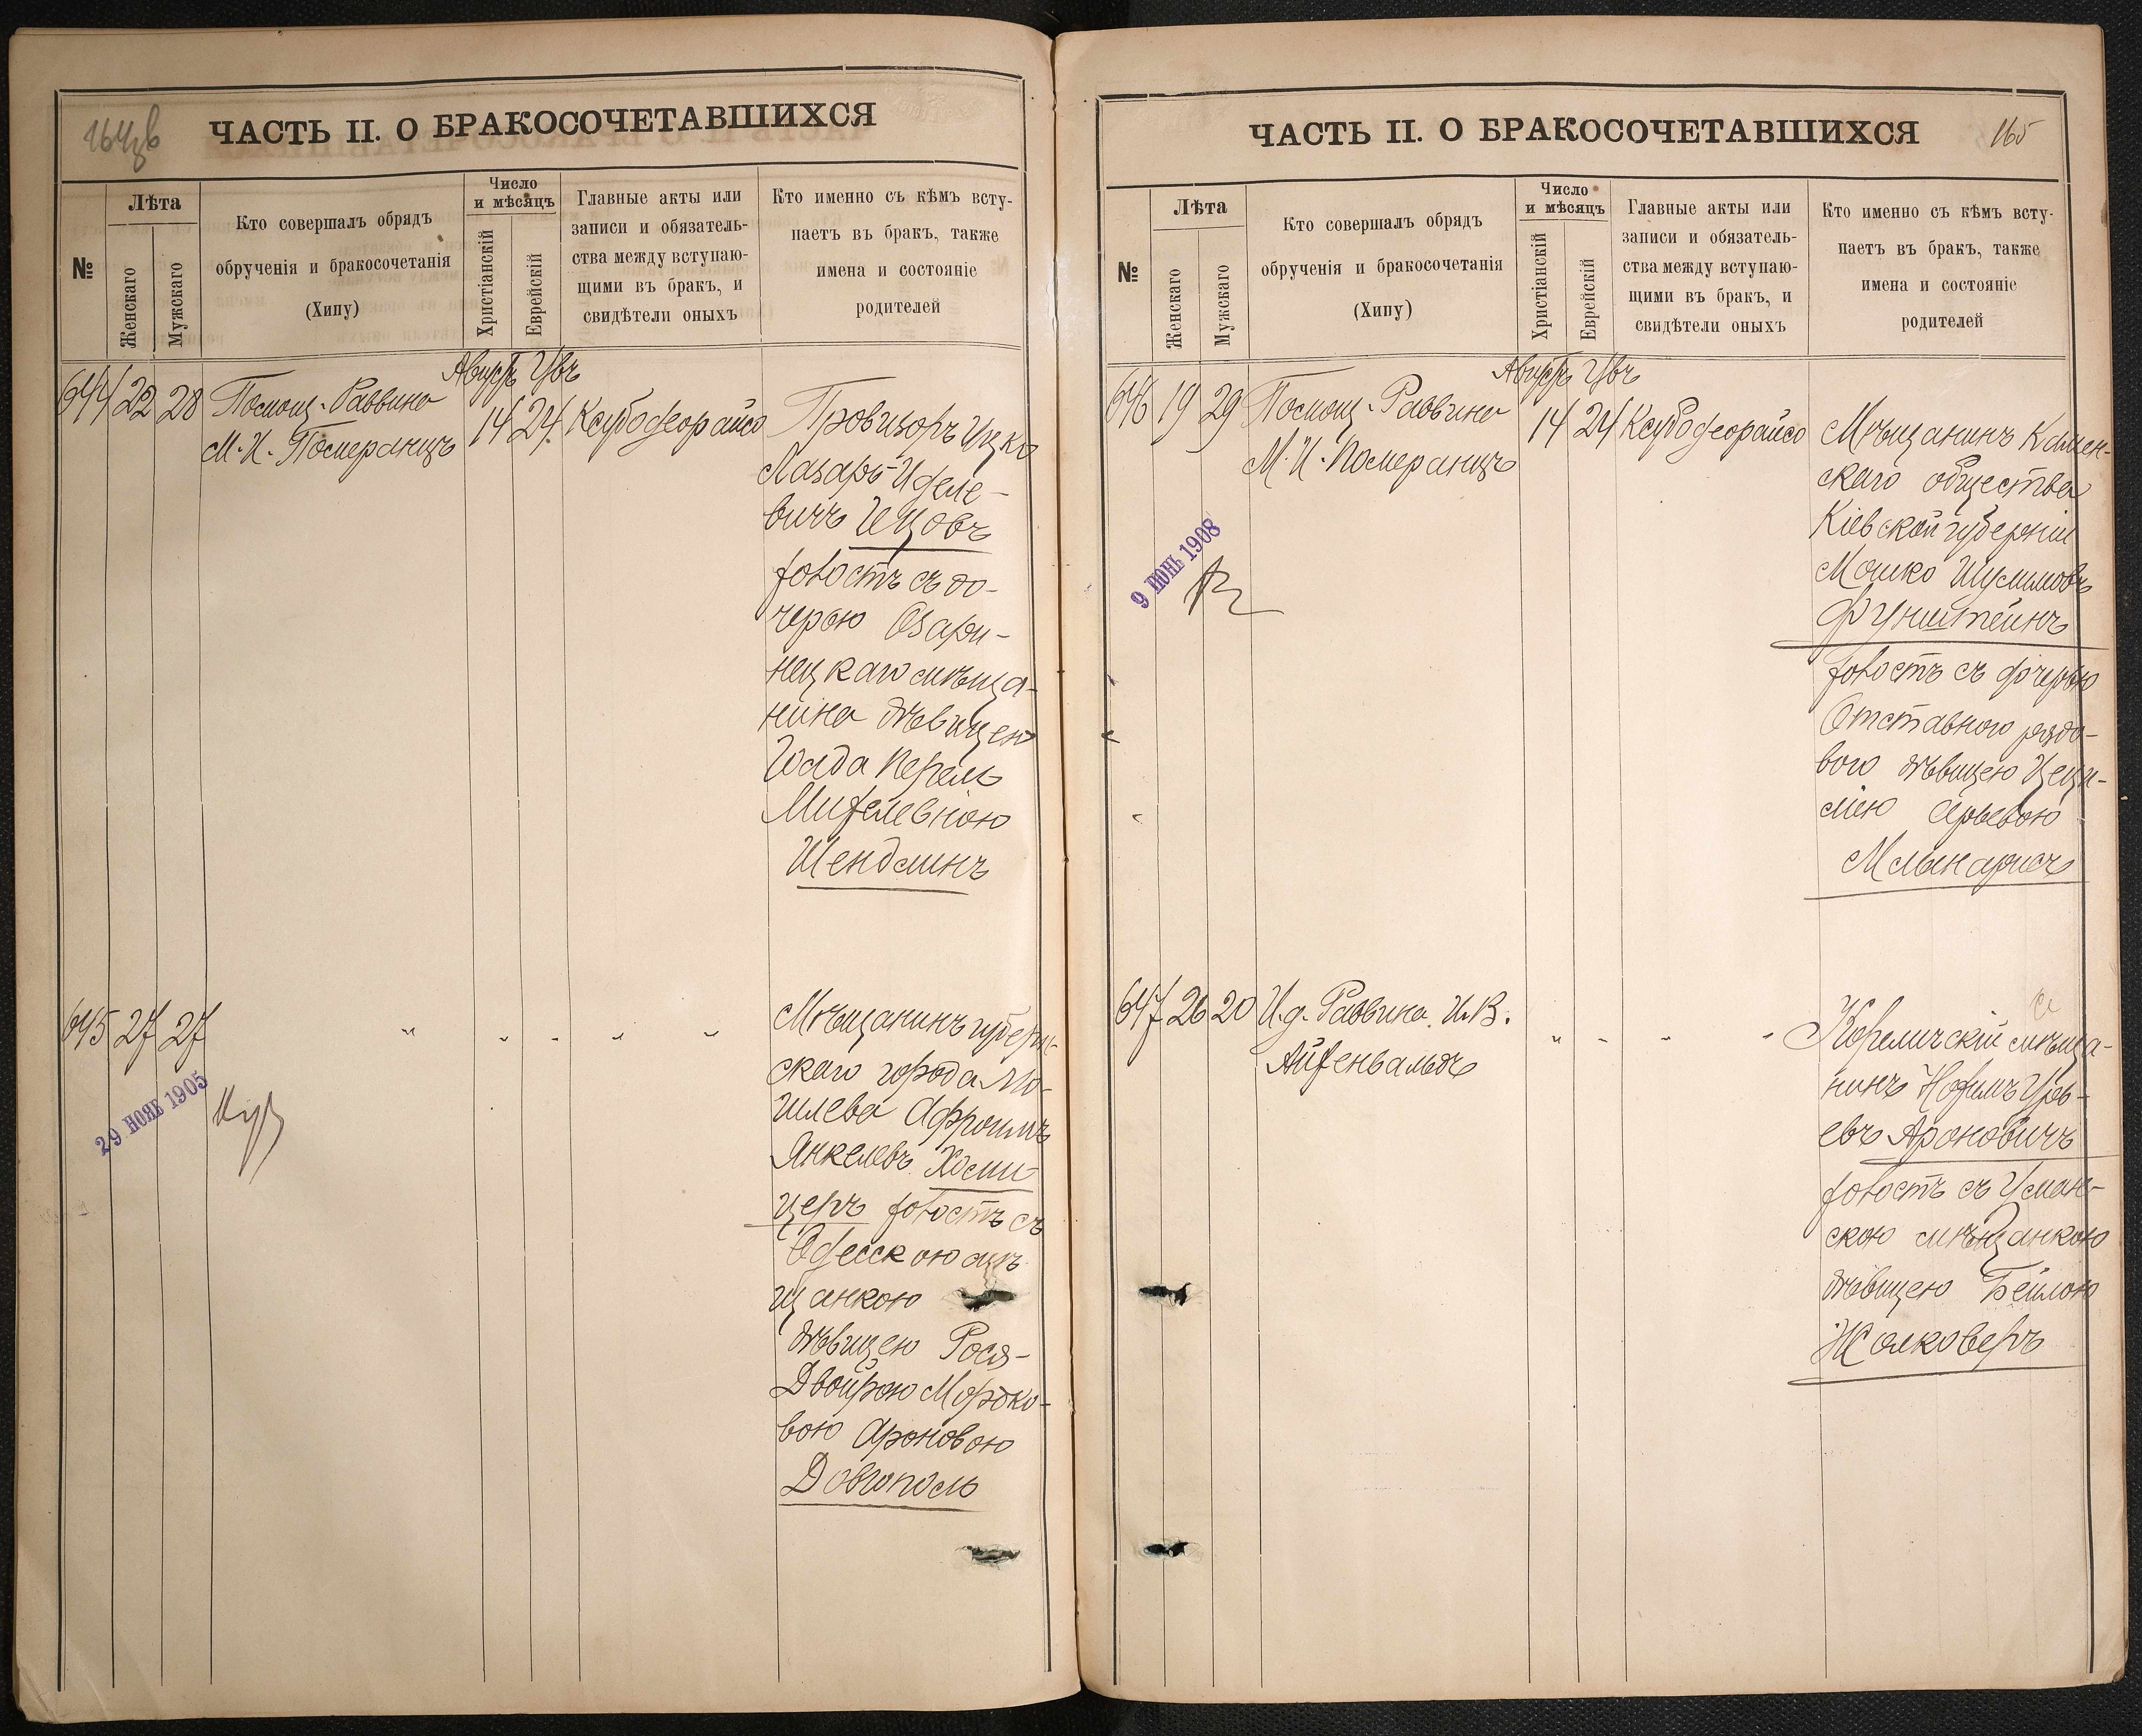 164 об
ЧАСТЬ II. О БРАКОСОЧЕТАВШИХСЯ
№
Лѣта
Женскаго
Мужскаго
Кто совершалъ обрядъ
обрученія и бракосочетанія
(Хипу)
Число
и мѣсяцъ
Христіанскій
Еврейскій
Главные акты или
записи и обязатель-
ства между вступаю-
щими въ бракъ, и
свидѣтели оныхъ
Кто именно съ кѣмъ всту-
паетъ въ бракъ, также
имена и состояніе
родителей
644 22 28
Помощ. Раввина
М. И. Померанцъ
Августъ
14 24
Ксубодеорайсо
Провизоръ Ицко
Лазарь Иделе-
вичъ
холостъ съ до-
черью Озари-
нецкаго мѣща-
нина дѣвицею
Перель
Шендлинъ
645 27 27
29 НОЯБ 1905
Мѣщанинъ губерн-
скаго города Мо-
гилева Афроимъ
Янкелевъ Хоми-
церъ холостъ съ
Одесскою мѣ-
щанкою
дѣвицею Рося-
Двойрою Мордко-
вою Ароновою
Довгополь
165
ЧАСТЬ II. О БРАКОСОЧЕТАВШИХСЯ
№
Лѣта
Женскаго
Мужскаго
Кто совершалъ обрядъ
обрученія и бракосочетанія
(Хипу)
Число
и мѣсяцъ
Христіанскій
Еврейскій
Главные акты или
записи и обязатель-
ства между вступаю-
щими въ бракъ, и
свидѣтели оныхъ
Кто именно съ кѣмъ всту-
паетъ въ бракъ, также
имена и состояніе
родителей
646 19 29
Помощ. Раввина
М. И. Померанцъ
Августъ
14 24
Ксубодеорайсо
9 ИЮНЬ 1908
Мѣщанинъ Камен-
скаго общества
Кіевской губерніи
Мошко Шулимовъ
Фунштейнъ
холостъ съ дочерью
Отставного рядо-
вого дѣвицею Цеци-
ліею Арьевою
Млынарисъ
647 26 20
И. д. Раввина И. В.
Айзенвальдъ
Кореличскій мѣща-
нинъ
евъ Ароновичъ
холостъ съ Уман-
скою мѣщанкою
дѣвицею Бейлою
Жолковеръ